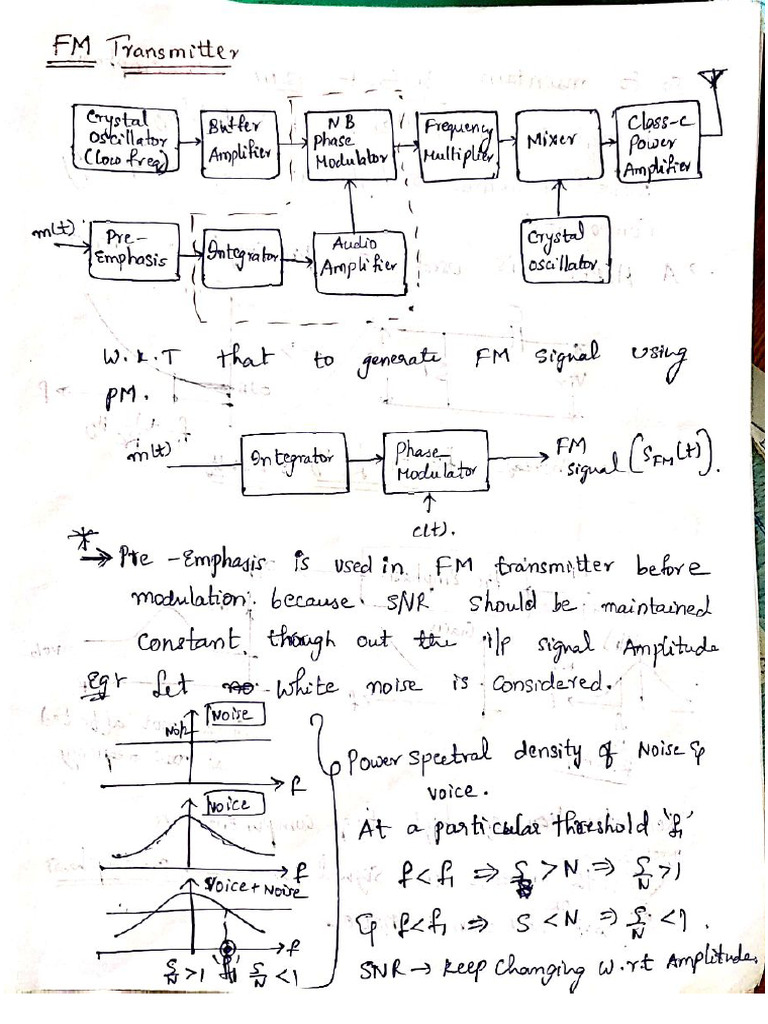 FM Transmitter
Crystal Oscillator (Low freq)
Buffer Amplifier
NB Phase Modulator
Frequency Multiplier
Mixer
Class-C Power Amplifier
m(t)
Pre-Emphasis
Integrator
Audio Amplifier
Crystal oscillator
W.K.T that to generate FM signal using
PM.
m(t)
Integrator
Phase Modulator
FM signal (S_FM(t)).
c(t).
* → Pre-Emphasis is used in FM transmitter before
modulation because SNR should be maintained
constant though out the i/p signal Amplitude
Eg:- Let white noise is considered.
Noise
No/2
f
Voice
f
Voice + Noise
f
S/N > 1 f1 S/N < 1
Power spectral density of Noise &
voice.
At a particular threshold 'f1'
f < f1 ⇒ S > N ⇒ S/N > 1
& f < f1 ⇒ S < N ⇒ S/N < 1.
SNR → keep changing w.r.t Amplitude.